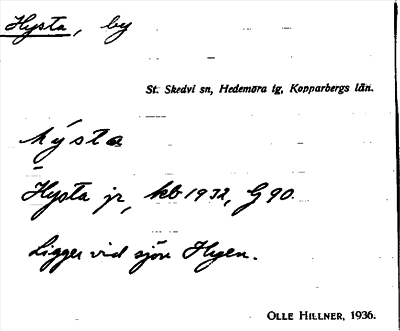 Hysta, by
St. Skedvi sn, Hedemora tg, Kopparbergs län.
hýsta
Hysta jr, kb 1932, G 90.
Ligger vid sjön Hyen.
OLLE HILLNER, 1936.